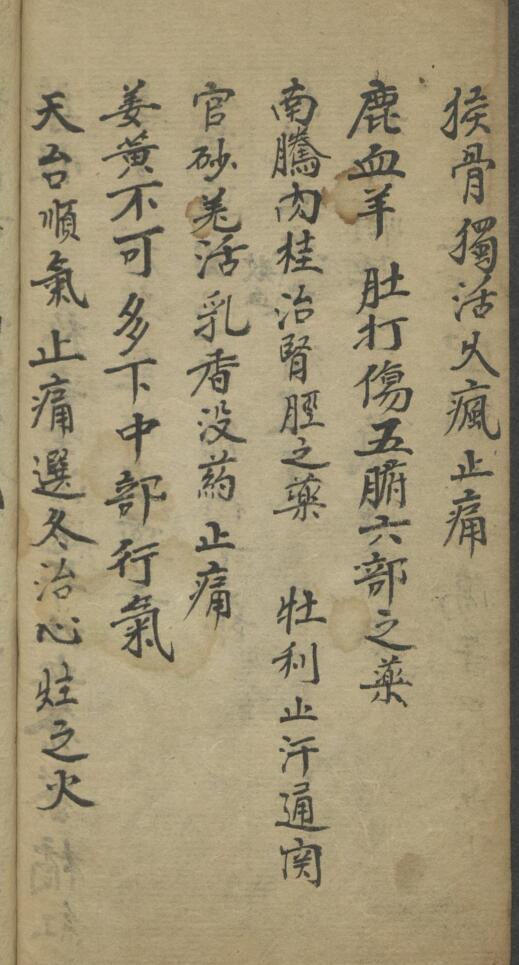 猴骨獨活火瘋止痛
鹿血羊肚打傷五腑六部之藥
南騰肉桂治腎脛之藥 壯利止汗通関
官砂羌活乳香没药止痛
姜黄不可多下中部行氣
天台順氣止痛選冬治心肚之火